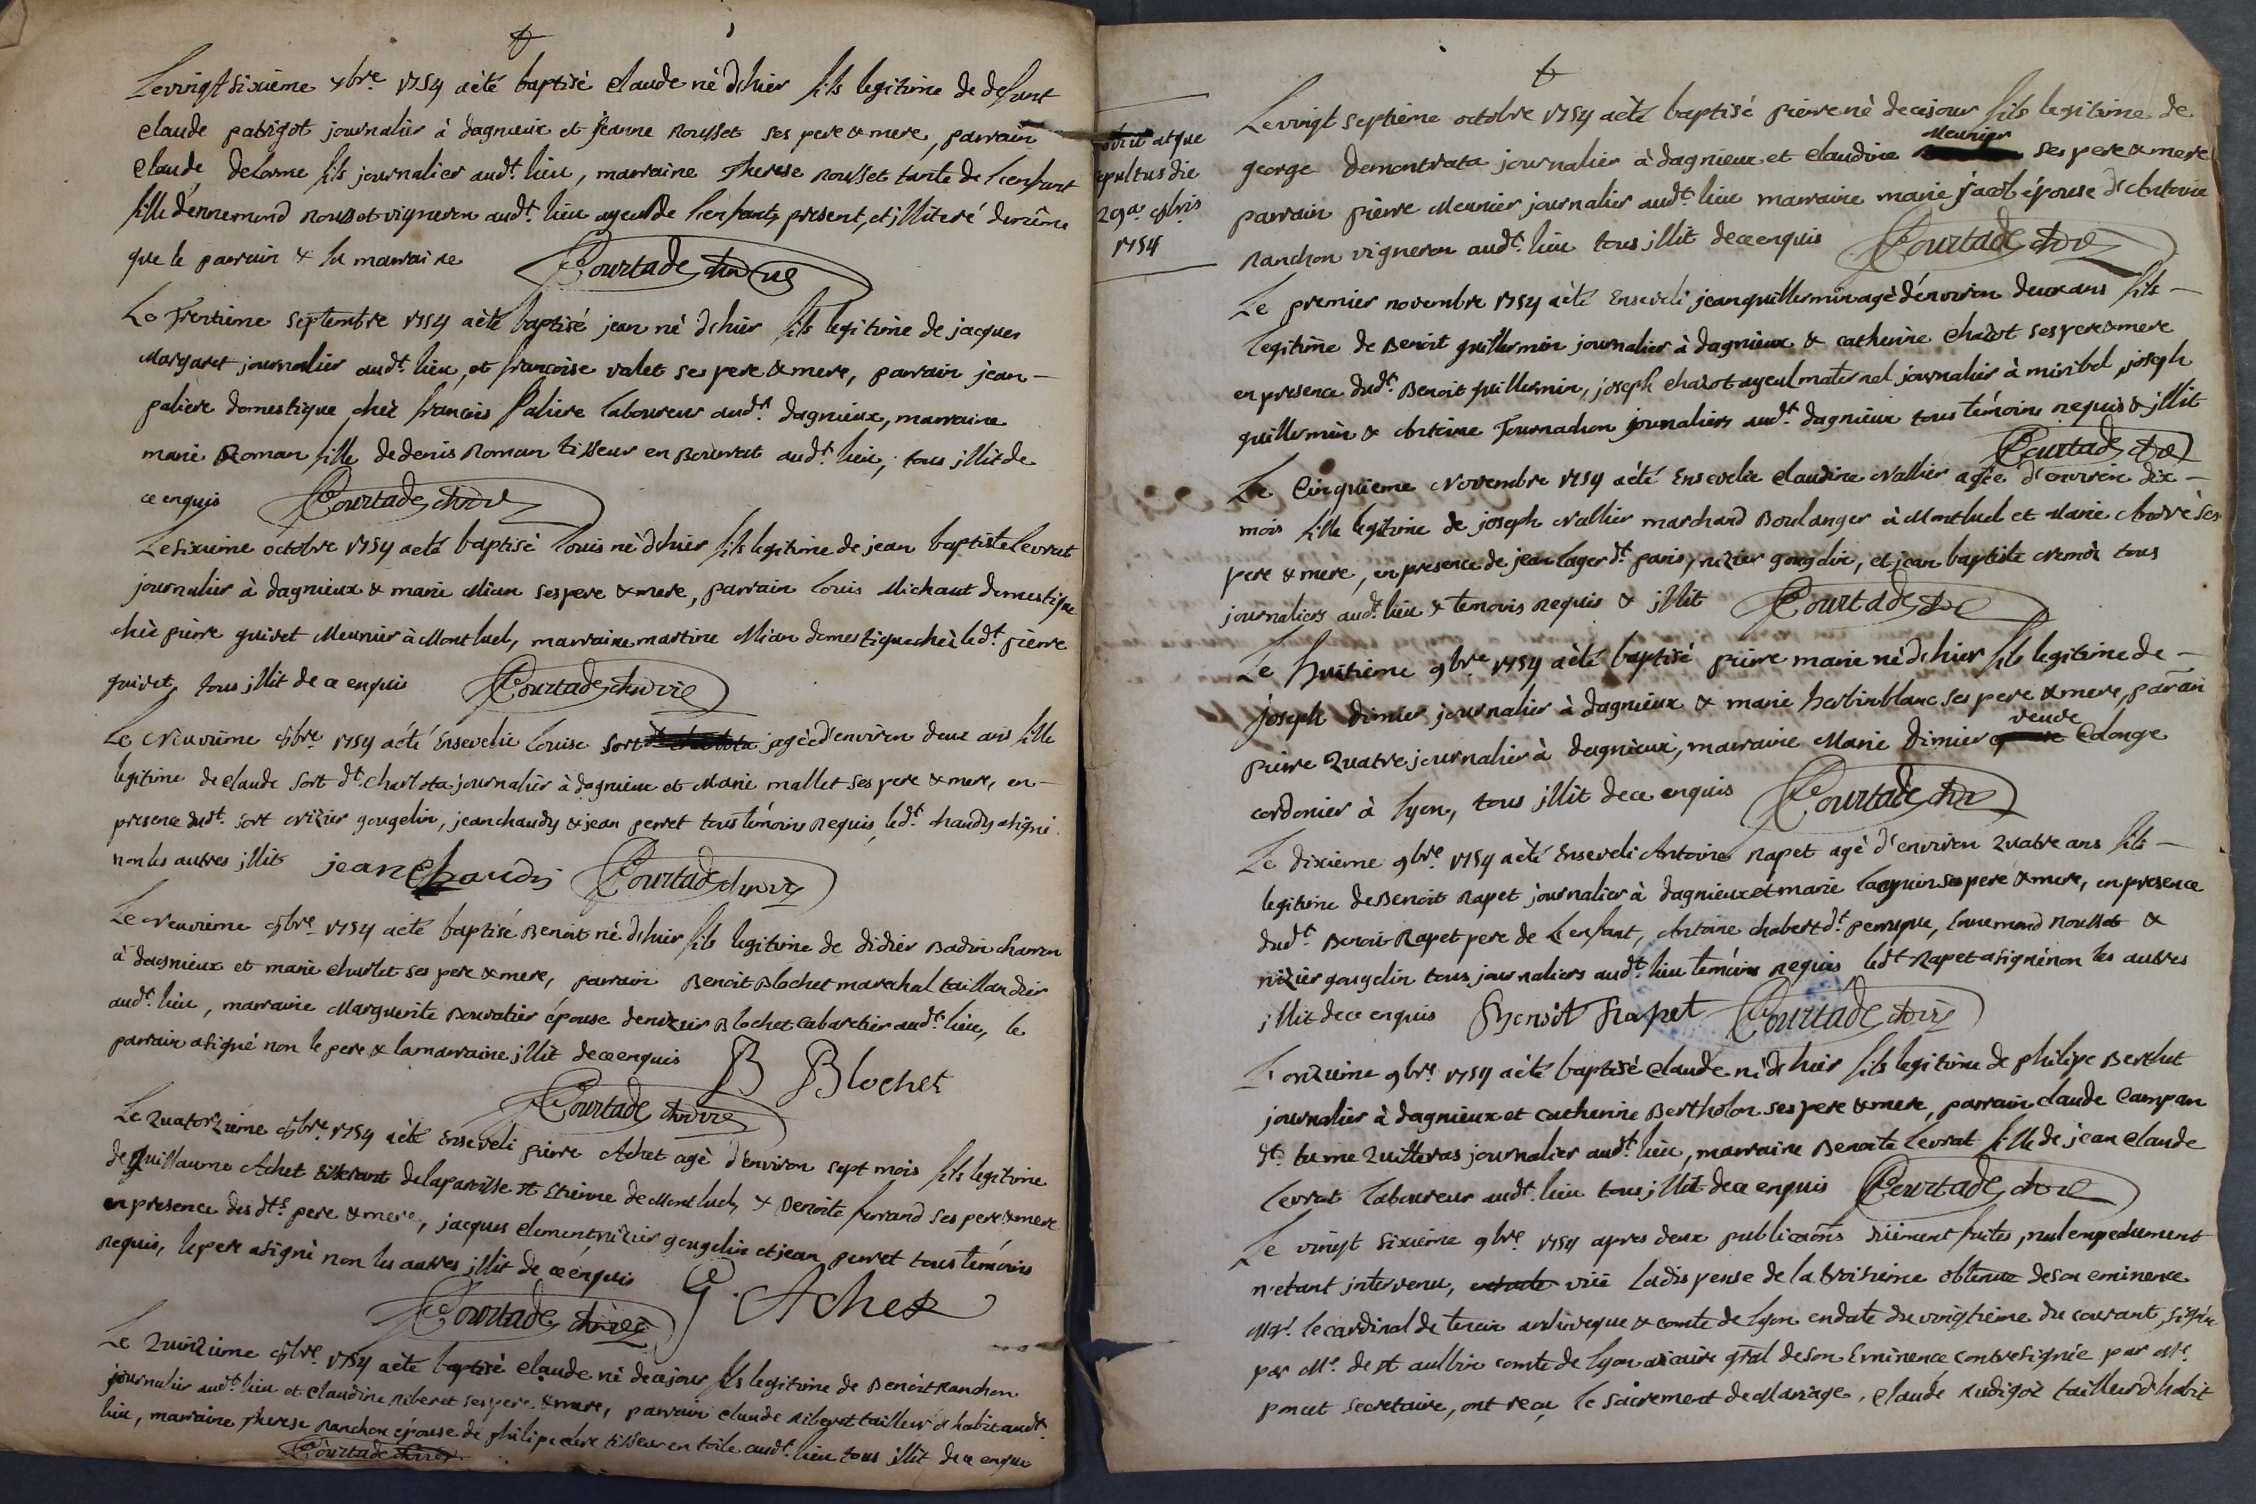 Le vingt sixième 7bre 1754 a été baptisé claude né d'hier fils legitime de defunt
claude patigot journalier à dagnieux et jeanne rousset ses pere & mere, parrain
claude delorme fils journalier audt. lieu, marraine Therese rousset tante de l'enfant
fille d'ennemond rousset vigneron audt. lieu ayeul de l'enfant, present, et jlliteré de même
que le parrain & la marraine Courtade
Le Trentième septembre 1754 a été baptisé jean né d'hier fils legitime de jacques
Margaret journalier audt. lieu, et françoise valet ses pere & mere, parrain jean
paliere domestique chès francois paliere laboureur audt. dagnieux, marraine
marie Roman fille de denis Roman tisseur en audt. lieu, tous jllit de
ce enquis Courtade
Le sixième octobre 1754 a été baptisé louis né d'hier fils legitime de jean baptiste Levrat
journalier à dagnieux & marie Mian ses pere & mere, parrain louis Michaut domestique
chès pierre guivet Meunier à Montluel, marraine martine Mian domestique chès ledt. pierre
guivet, tous jllit de ce enquis Courtade
Le Neuvième 8bre 1754 a été Ensevelie Louise sort agée d'environ deux ans fille
legitime de claude sort dt. charlota journalier à dagnieux et Marie mallet ses pere & mere, en
presence dudt. sort nizier gougelin, jean chaudy & jean perret tous témoins requis, ledt. chaudy a signé
non les autres jllit jean chaudy Courtade
Le Neuvième 8bre 1754 a été baptisé Benoit né d'hier fils legitime de didier Badin charron
à dagnieux et marie charlet ses pere & mere, parrain Benoit Blochet marechal taillandier
audt. lieu, marraine Marguerite Bouvatier épouse de nizier Blochet Cabaretier audt. lieu, le
parrain a signé non le pere & la marraine jllit de ce enquis B Blochet
Courtade
Le quatorzième 8bre 1754 a été Enseveli pierre Achet agé d'environ sept mois fils legitime
de guillaume Achet tisserant de la paroisse st Etienne de Montluel, & Benoite ferrand ses pere & mere
en presence des dts. pere & mere, jacques clement, nizier gougelin et jean perret tous témoins
requis, le pere a signé non les autres jllit de ce enquis G. Achet
Courtade
Le quinzième 8bre 1754 a été baptisé claude né de ce jour fils legitime de Benoit Ranchon
journalier audt. lieu et claudine riberet ses pere & mere, parrain claude riberet tailleur d'habit audt.
lieu, marraine Therese Ranchon épouse de philipe tisseur en toile audt. lieu tous jllit de ce enquis
Courtade
atque
sepultus die
29a 8bris
1754
Le vingt septième octobre 1754 a été baptisé pierre né de ce jour fils legitime de
george demontrata journalier à dagnieux et claudine Meunier ses pere & mere
parrain pierre Meunier journalier audt. lieu marraine marie jacob épouse d'Antoine
Ranchon vigneron audt. lieu tous jllit de ce enquis Courtade
Le premier novembre 1754 a été Enseveli jean guillermin agé d'environ deux ans fils
legitime de Benoit guillermin journalier à dagnieux & catherine chazot ses pere & mere
en presence dudt. Benoit guillermin, joseph chazot ayeul maternel journalier à miribel, joseph
guillermin & Antoine Tournachon journaliers audt. dagnieux tous témoins requis & jllit
Courtade
Le Cinquième Novembre 1754 a été Ensevelie claudine Nallier agée d'environ dix
mois fille legitime de joseph Nallier marchand Boulanger à Montluel et Marie André ses
pere & mere, en presence de jean lager dt. paris, nizier gougelin, et jean baptiste tous
journaliers audt. lieu & temoins requis & jllit Courtade
Le huitième 9bre 1754 a été baptisé pierre marie né d'hier fils legitime de
joseph dimier journalier à dagnieux & marie herbinblanc ses pere & mere, parain
pierre quatre journalier à dagnieux, marraine Marie dimier veuve Calonge
cordonier à Lyon, tous jllit de ce enquis Courtade
Le dixième 9bre 1754 a été Enseveli Antoine Rapet agé d'environ quatre ans fils
legitime de Benoit Rapet journalier à dagnieux et marie ses pere & mere, en presence
dudt. Benoit Rapet pere de l'enfant, Antoine chabert dt. perruque, Ennemond rousset &
nizier gougelin tous journaliers audt. lieu temoins requis ledt. Rapet a signé non les autres
jllit de ce enquis Benoit Rapet Courtade
L'onzième 9bre 1754 a été baptisé claude né d'hier fils legitime de philipe Berthet
journalier à dagnieux et catherine Bertholon ses pere & mere, parrain claude Campan
dt. tu me quitteras journalier audt. lieu, marraine Benoite Levrat fille de jean claude
Levrat laboureur audt. lieu tous jllit de ce enquis Courtade
Le vingt sixième 9bre 1754 apres deux publications düement faites, nul empechement
n'etant jntervenu, vüe la dispense de la troisième obtenue de son eminence
Mgr. le cardinal de tencin archeveque & comte de Lyon en date du vingtième du courant, signée
par Mr. de st aulbin comte de Lyon vicaire gnal de son Eminence contresignée par Mr.
poncet secretaire, ont reçu le sacrement de Mariage, claude Rudigoz tailleur d'habit